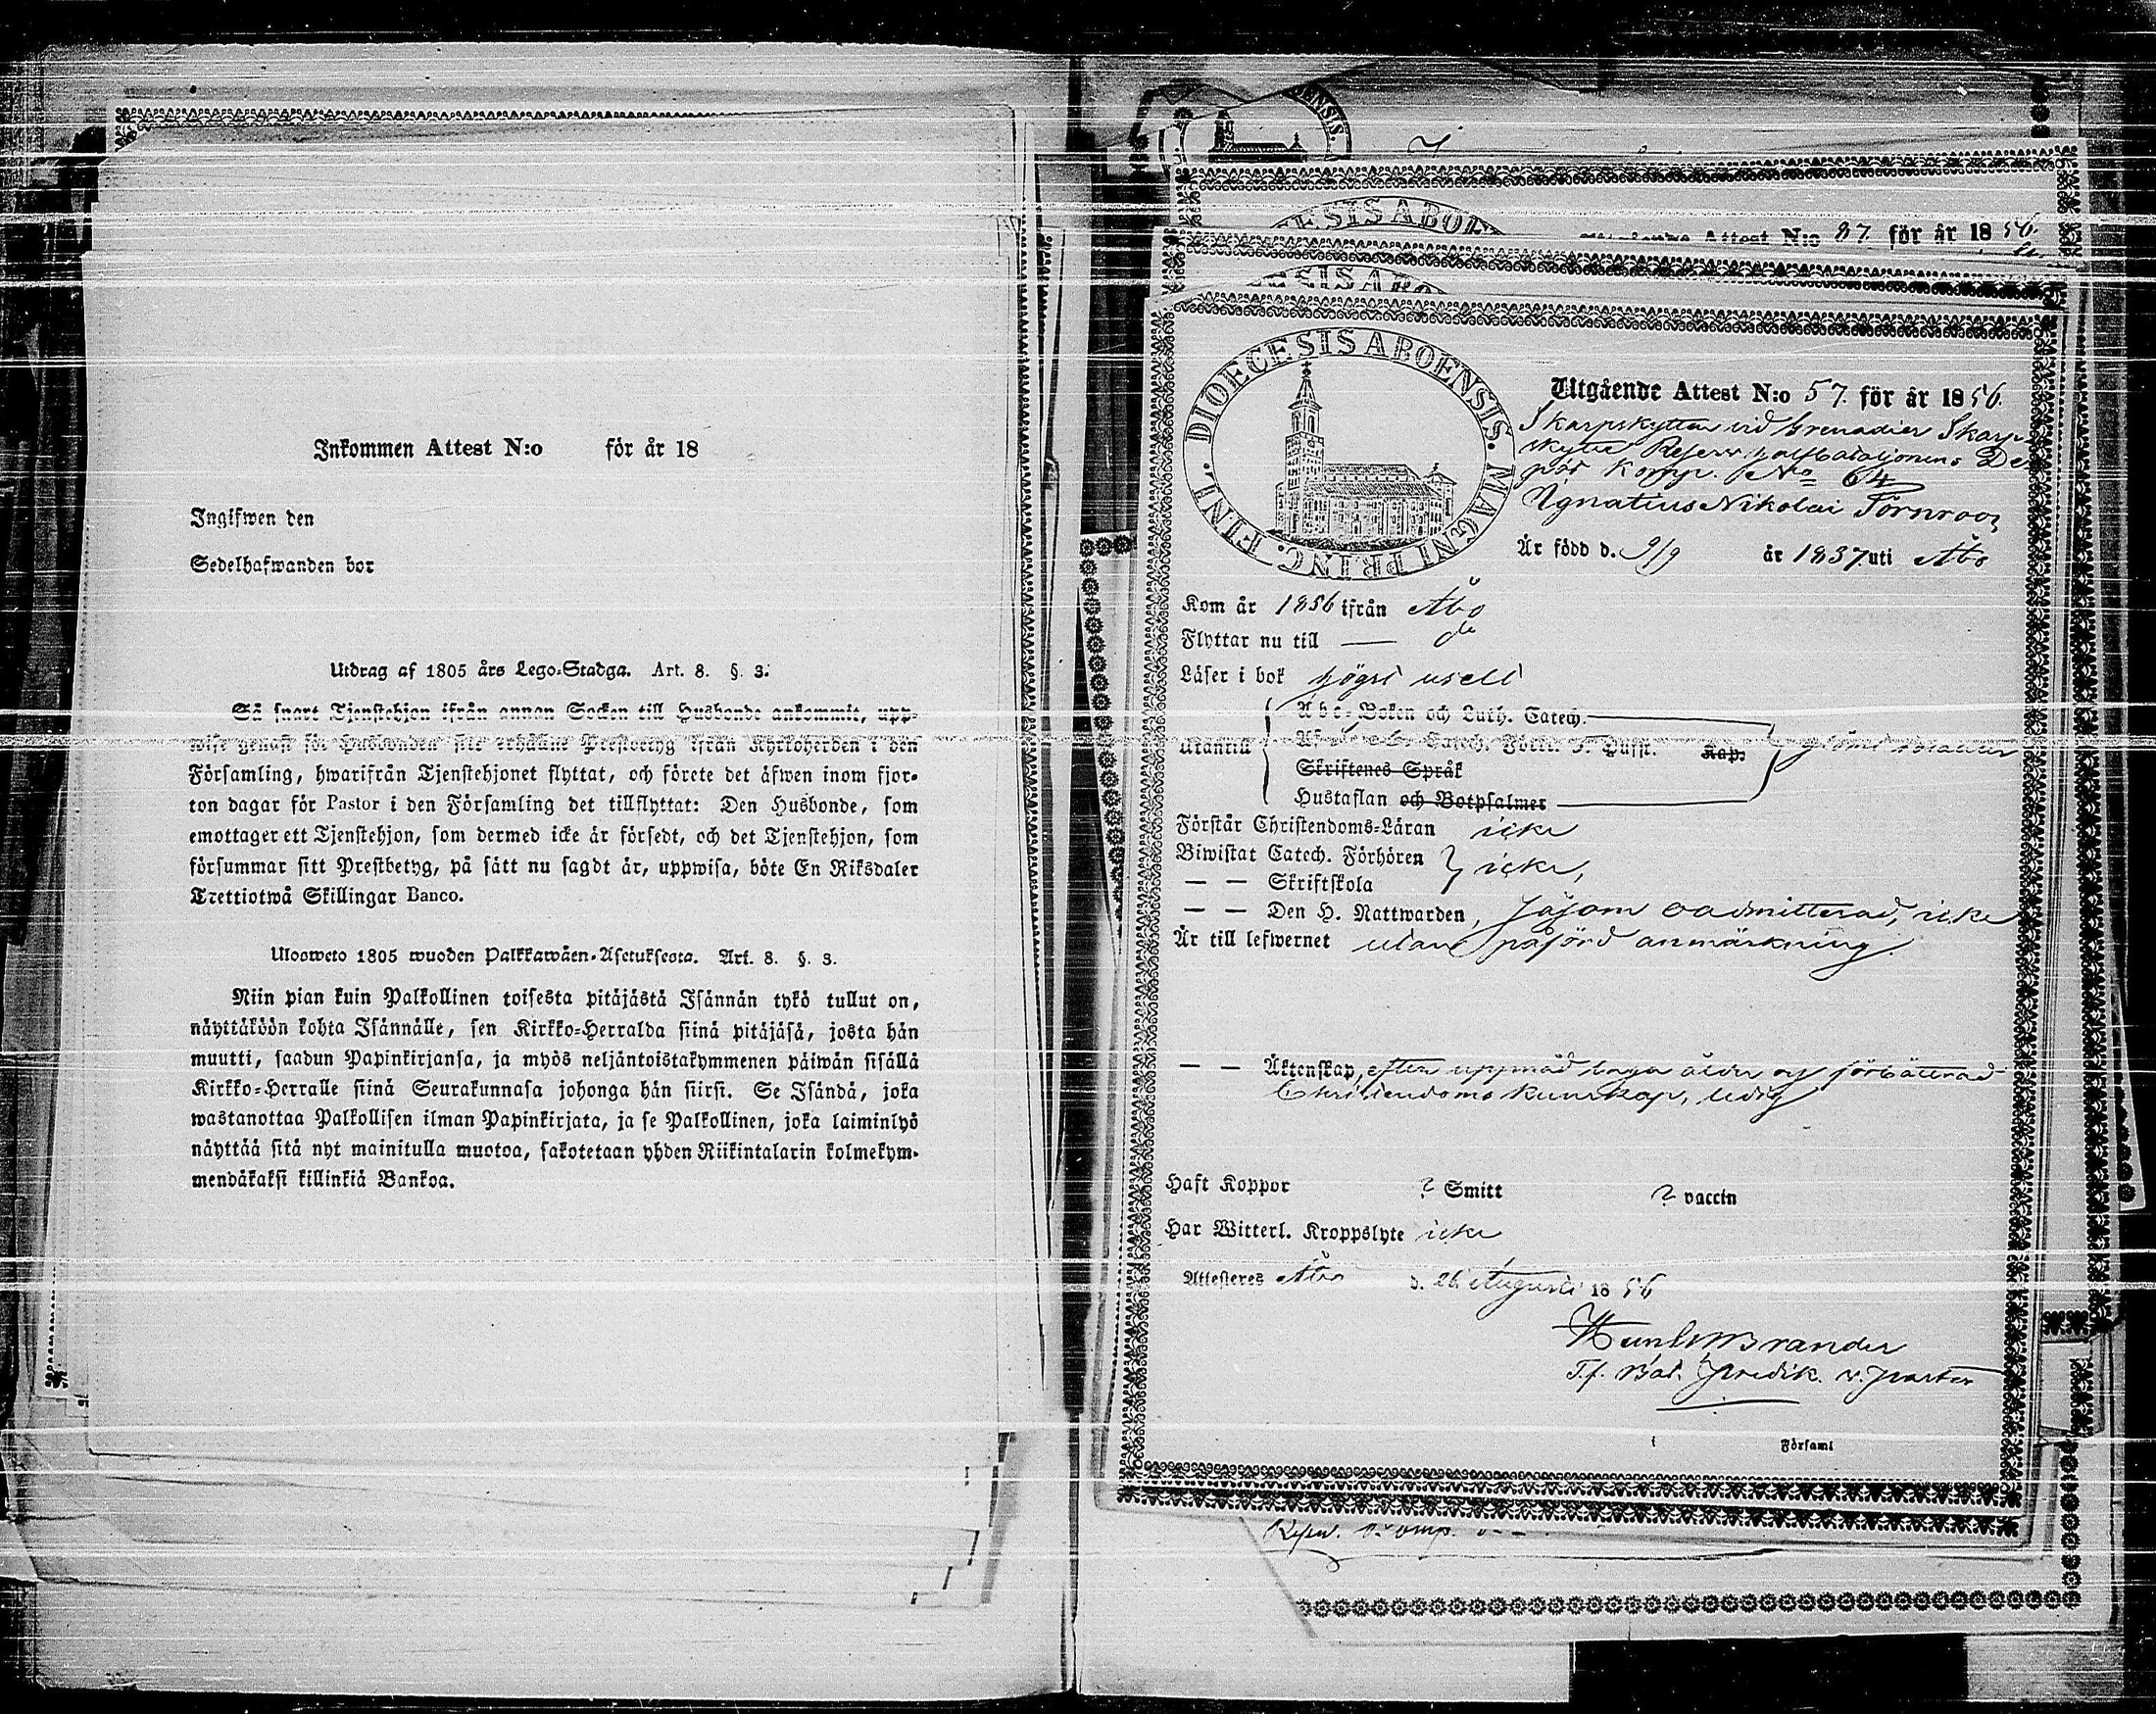 Inkommen Attest N:o för år 18
Ingifwen den
Sedelhafwanden bor
Utdrag af 1805 års Lego-Stadga. Art. 8. §. 3.
Så snart Tjenstehjon ifrån annan Socken till Husbonde ankommit, upp-
wise genast för Husbonden sitt erhållne Prestbetyg ifrån Kyrkoherden i den
Församling, hwarifrån Tjenstehjonet flyttat, och förete det äfwen inom fjor-
ton dagar för Pastor i den Församling det tillflyttat: Den Husbonde, som
emottager ett Tjenstehjon, som dermed icke är försedt, och det Tjenstehjon, som
försummar sitt Prestbetyg, på sätt nu sagdt är, uppwisa, böte En Riksdaler
Trettiotwå Skillingar Banco.
Ulosweto 1805 wuoden Palkkawäen-Asetuksesta. Art. 8. §. 3.
Niin pian kuin Palkollinen toisesta pitäjästä Isännän tykö tullut on,
näyttäköön kohta Isännälle, sen Kirkko-Herralda siinä pitäjäsä, josta hän
muutti, saadun Papinkirjansa, ja myös neljäntoistakymmenen päiwän sisällä
Kirkko-Herralle siinä Seurakunnasa johonga hän siirsi. Se Isändä, joka
wastanottaa Palkollisen ilman Papinkirjata, ja se Palkollinen, joka laiminlyö
näyttää sitä nyt mainitulla muotoa, sakotetaan yhden Riikintalarin kolmekym-
mendäkaksi killinkiä Bankoa.
ENSIS.
ESIS ABOEN
Attest N:o 87. för år 1856.
DIOECESIS ABOENSIS. MAGNI PRINC. FINL.
Utgående Attest N:o 57. för år 1856.
Skarpskytten vid Grenadier Skarp-
skytte Reserv Bataljonens De-
pôt Komp. No 64
Ignatius Nikolai Törnroos
Är född d. 9/9 år 1837 uti Åbo
Kom år 1856 ifrån Åbo
Flyttar nu till — do
Läser i bok högst uselt
Abc-Boken och Luth. Catech.
Utantill Catech. Förkl. Kap.
Skriftenes Språk
Hustaflan och Botpsalmer
Förstår Christendoms-Läran icke
Biwistat Catech. Förhören icke,
— — Skriftskola
— — Den H. Nattwarden, såsom oadmitterad, icke
Är till lefwernet utan påförd anmärkning.
— — Äktenskap, efter uppnåd laga ålder och förbättrad
Christendoms kunskap, ledig
Haft Koppor ? Smitt ? vaccin
Har Witterl. Kroppslyte icke
Attesteres Åbo d. 26 Augusti 1856
Brander
T.f. Bat. Predik. v. Pastor
Församl
Reserv. Komp.